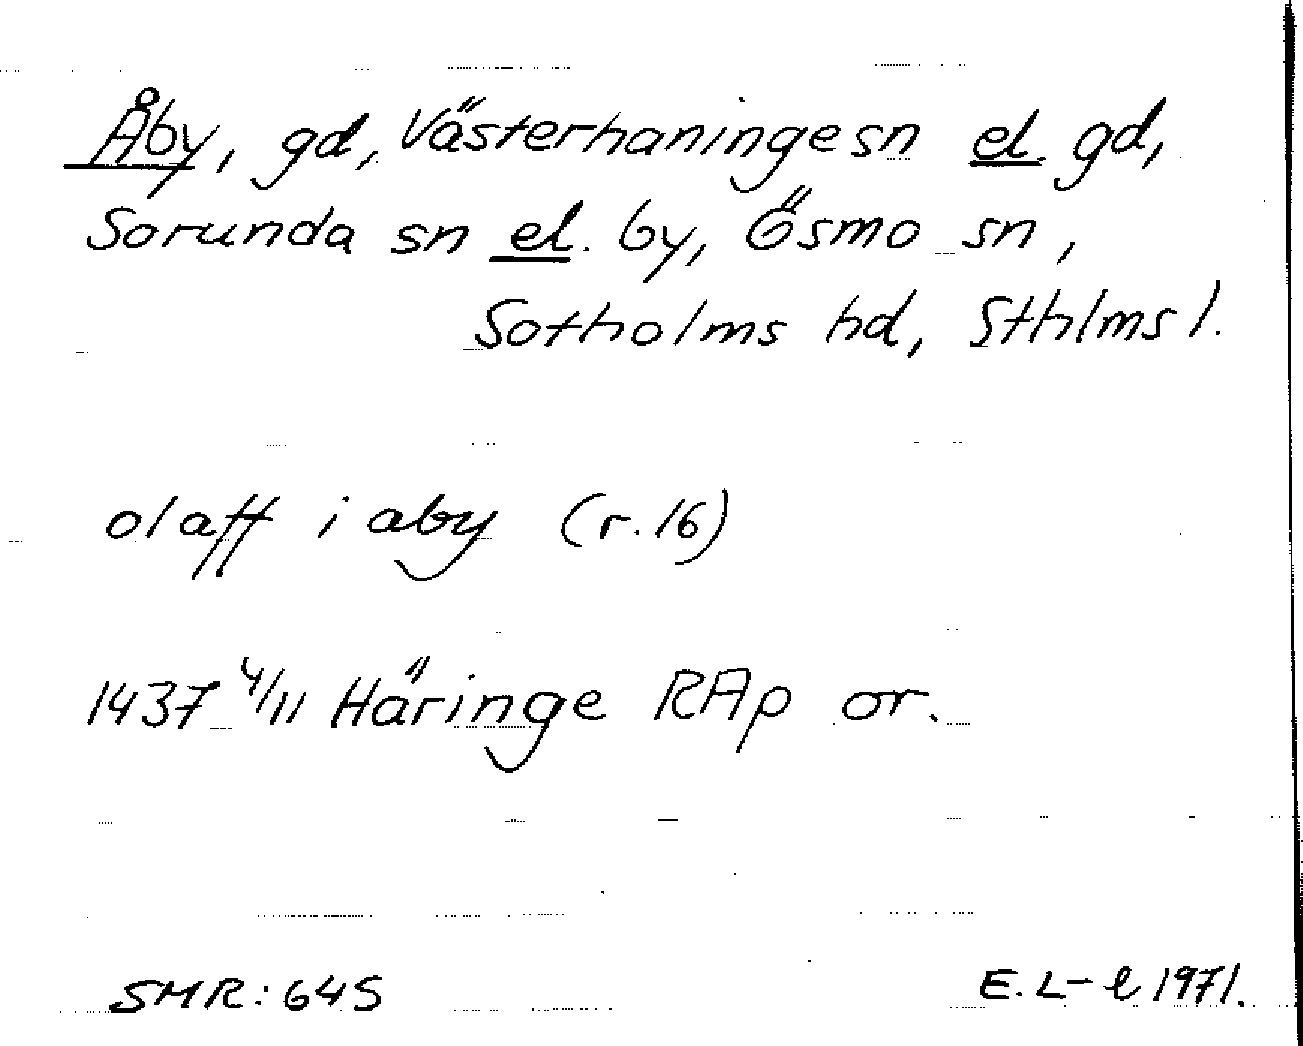 Åby, gd, Västerhaninge sn el gd,
Sorunda sn el. by, Ösmo sn,
Sotholms hd, Sthlms l.
olaff i aby (r. 16)
1437 4/11 Häringe RAp or.
SMR: 645
E. L-l 1971.